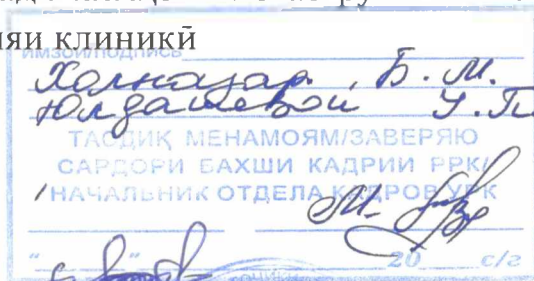 яи клиникӣ
ИМЗОИ/ПОДПИСЬ
Холназар Б. М.
Юлдашевой У.П.
ТАСДИҚ МЕНАМОЯМ/ЗАВЕРЯЮ
САРДОРИ БАХШИ КАДРИИ РРК/
НАЧАЛЬНИК ОТДЕЛА КАДРОВ УРК
" " 20 с/г